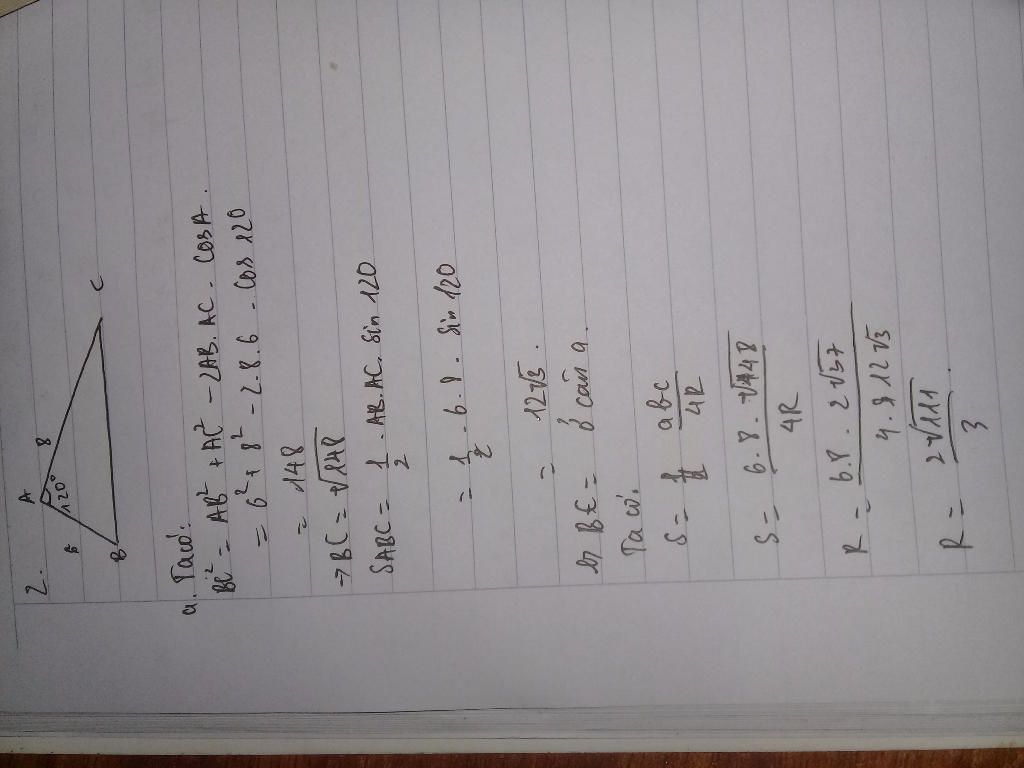 2.
A
6
120°
8
B
C
a. Ta có:
BC² = AB² + AC² - 2AB.AC. cosA.
= 6² + 8² - 2.8.6. cos 120
= 148
→ BC = √148
SABC = 1/2 . AB.AC. sin 120
= 1/2 . 6.8. sin 120
= 12√3.
Ta có:
S = abc/4R
S = 6.8.√148/4R
R = 6.8.2√37/4.12√3
R = 2√111/3.